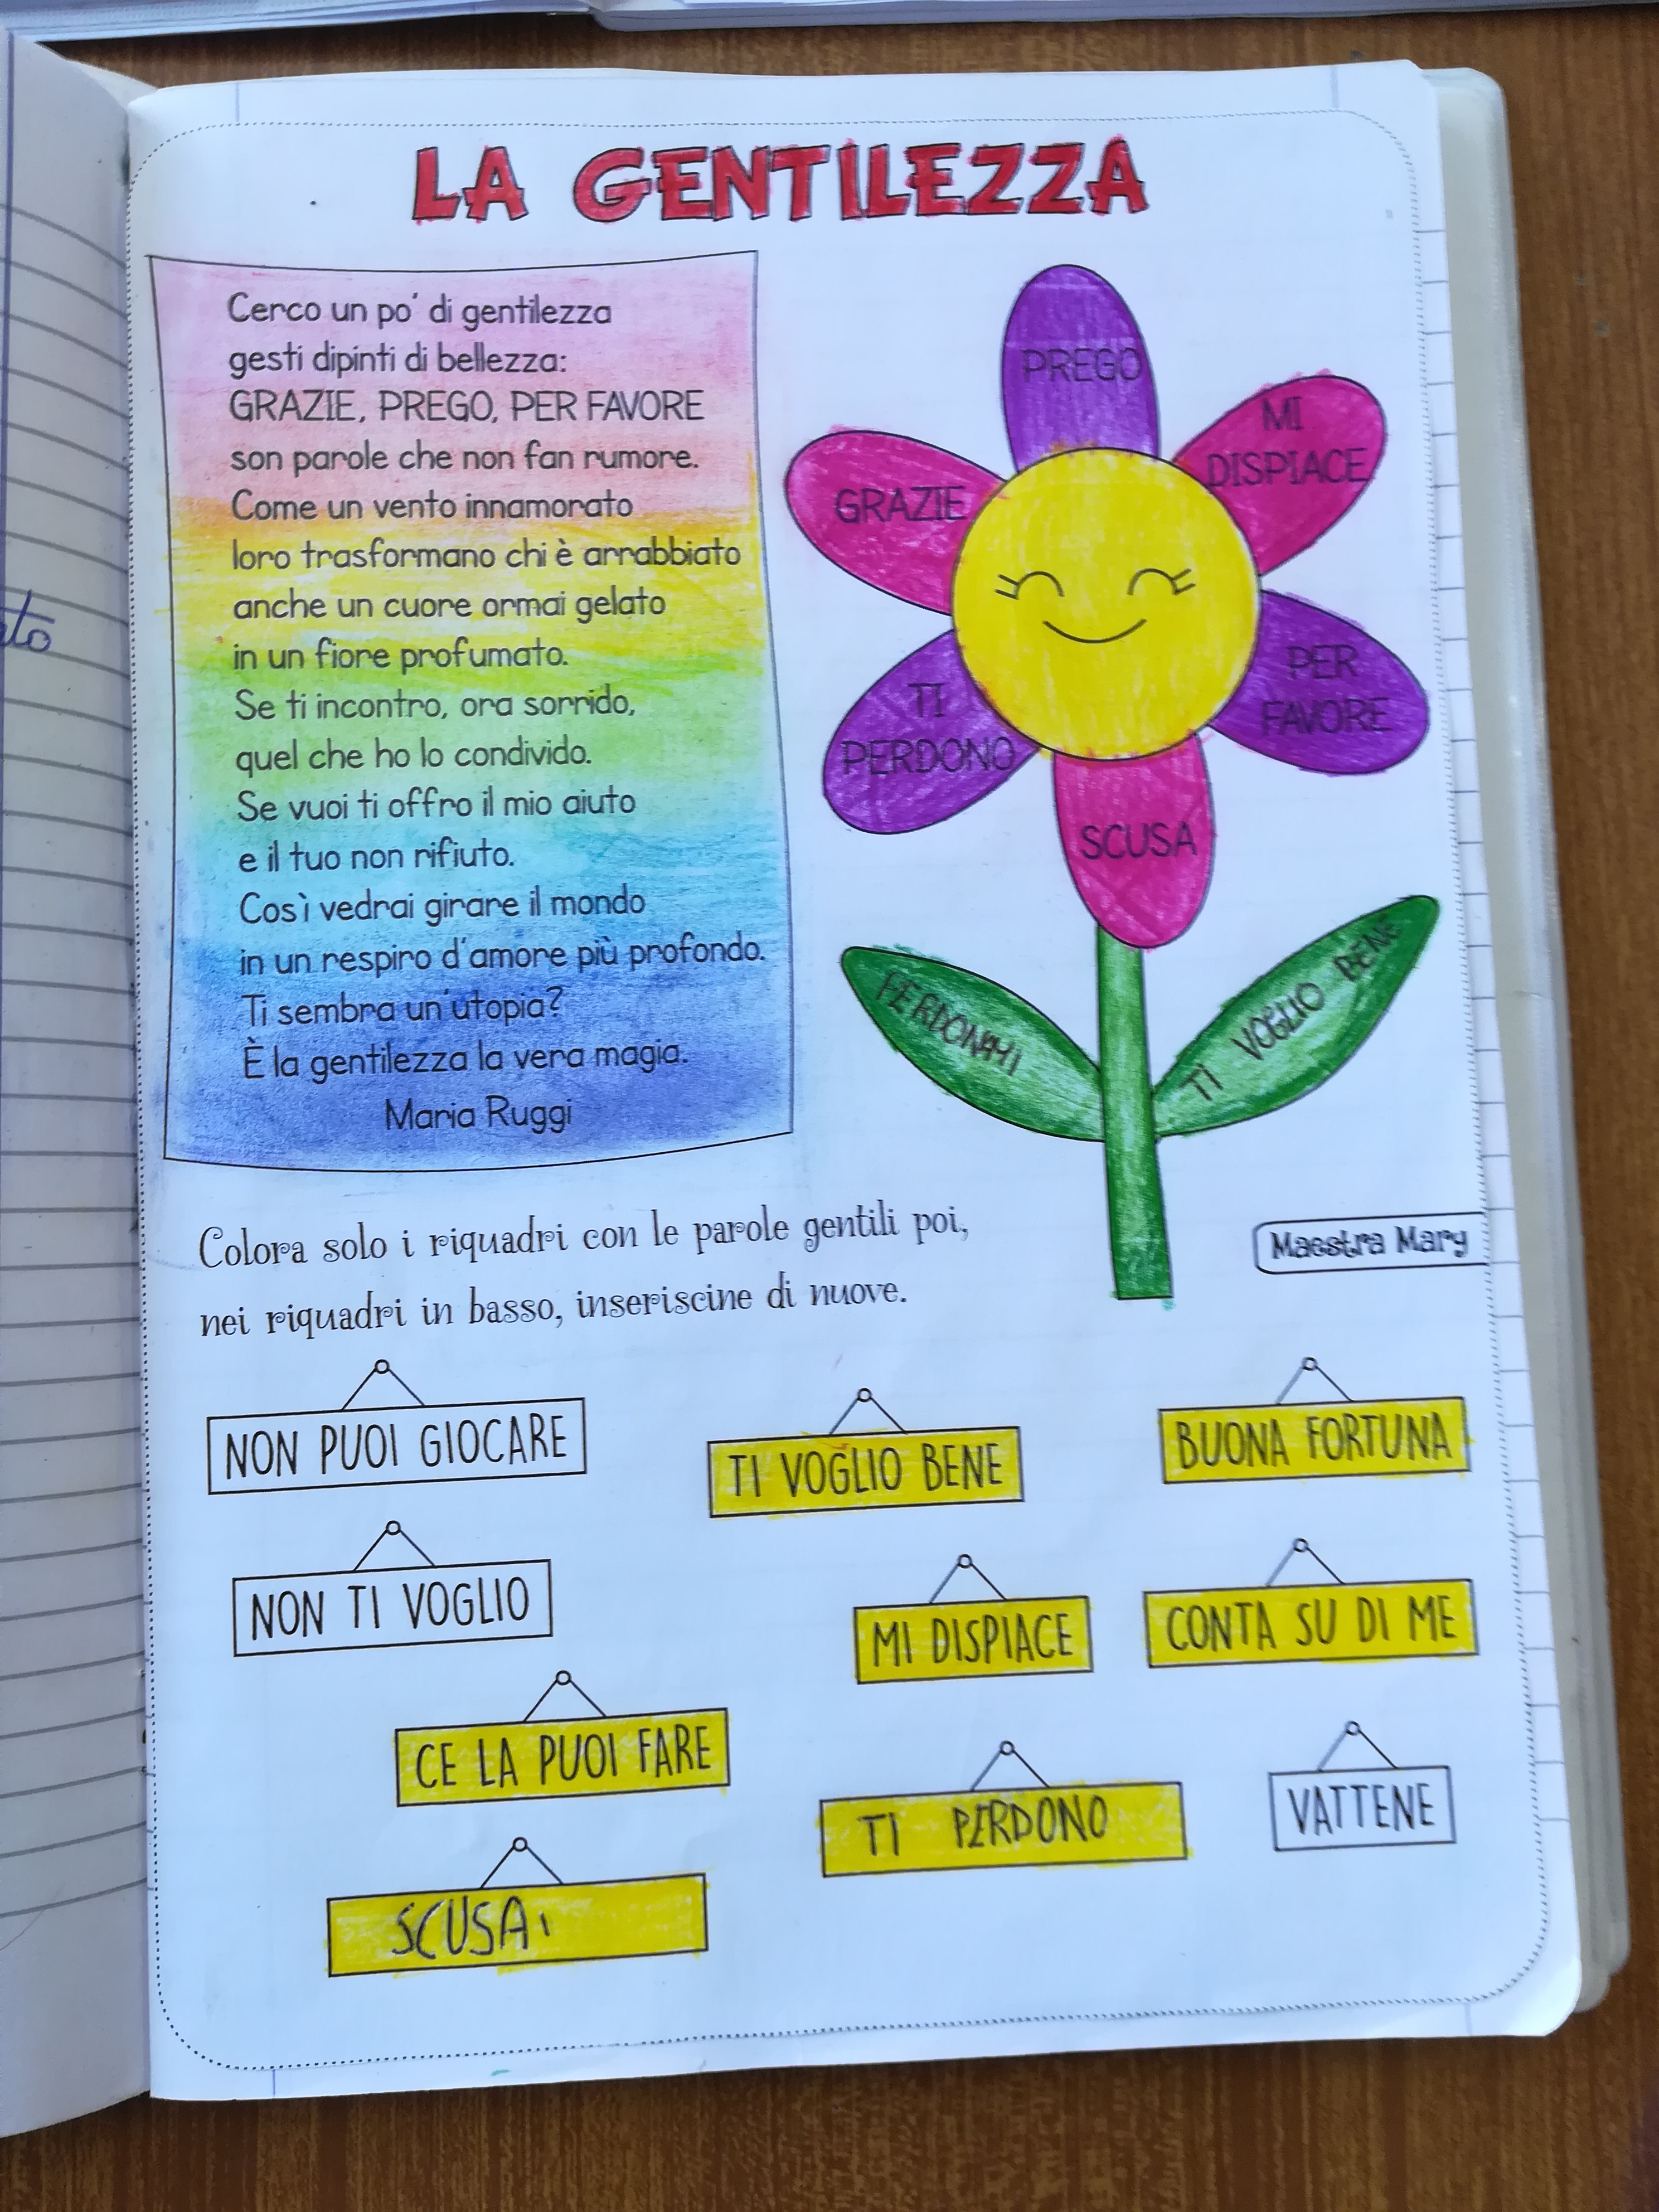 LA GENTILEZZA
Cerco un po' di gentilezza
gesti dipinti di bellezza:
GRAZIE, PREGO, PER FAVORE
son parole che non fan rumore.
Come un vento innamorato
loro trasformano chi è arrabbiato
anche un cuore ormai gelato
in un fiore profumato.
Se ti incontro, ora sorrido,
quel che ho lo condivido.
Se vuoi ti offro il mio aiuto
e il tuo non rifiuto.
Così vedrai girare il mondo
in un respiro d'amore più profondo.
Ti sembra un'utopia?
È la gentilezza la vera magia.
Maria Ruggi
PREGO
MI
DISPIACE
GRAZIE
PER
FAVORE
TI
PERDONO
SCUSA
PERDONAMI
TI VOGLIO BENE
Maestra Mary
Colora solo i riquadri con le parole gentili poi,
nei riquadri in basso, inseriscine di nuove.
NON PUOI GIOCARE
TI VOGLIO BENE
BUONA FORTUNA
NON TI VOGLIO
MI DISPIACE
CONTA SU DI ME
CE LA PUOI FARE
TI PERDONO
VATTENE
SCUSA